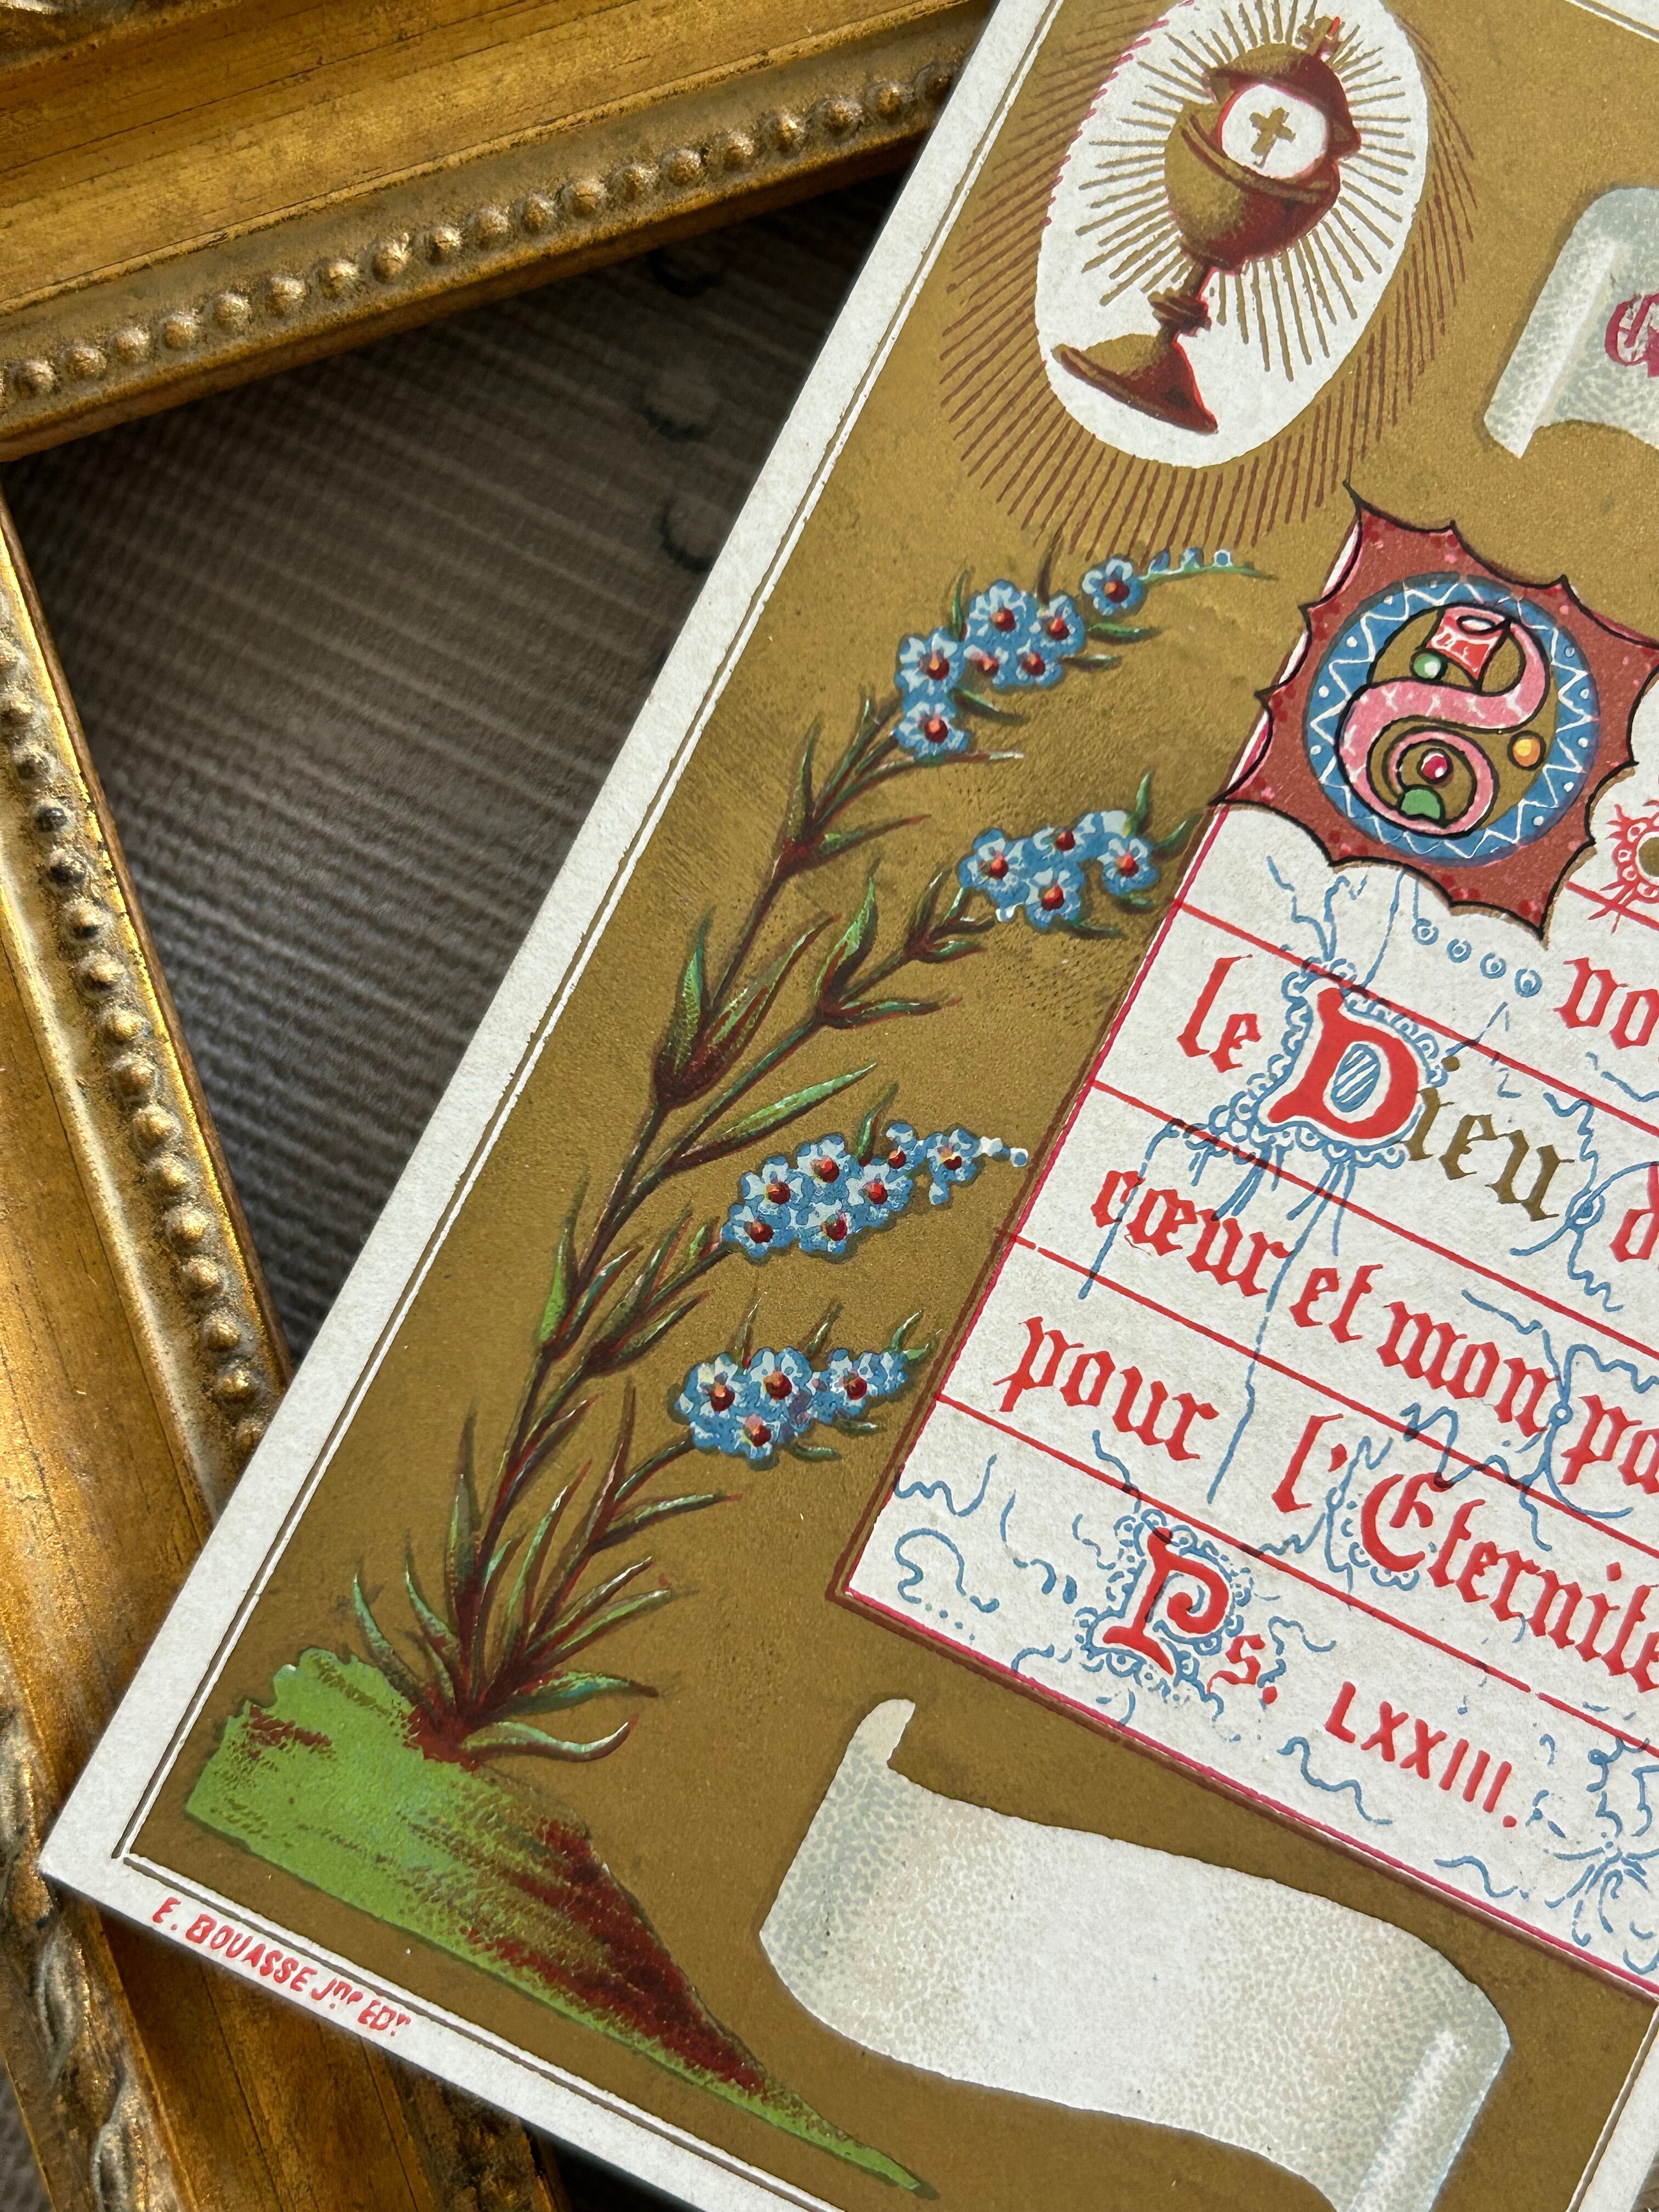 vo
le Dieu d
cœur et mon pa
pour l'Eternité
Ps. LXXIII.
E. BOUASSE Jne EDr